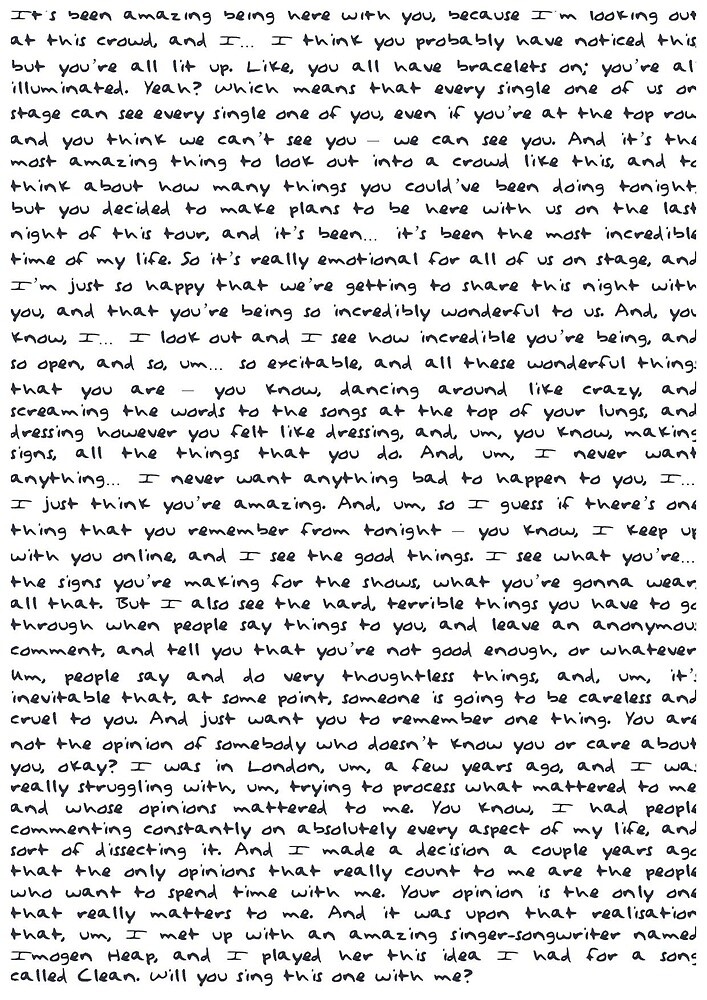 It's been amazing being here with you, because I'm looking out
at this crowd, and I... I think you probably have noticed this
but you're all lit up. Like, you all have bracelets on; you're al
illuminated. Yeah? Which means that every single one of us on
stage can see every single one of you, even if you're at the top row
and you think we can't see you – we can see you. And it's the
most amazing thing to look out into a crowd like this, and to
think about how many things you could've been doing tonight
but you decided to make plans to be here with us on the last
night of this tour, and it's been... it's been the most incredible
time of my life. So it's really emotional for all of us on stage, and
I'm just so happy that we're getting to share this night with
you, and that you're being so incredibly wonderful to us. And, you
know, I... I look out and I see how incredible you're being, and
so open, and so, um... so excitable, and all these wonderful things
that you are – you know, dancing around like crazy, and
screaming the words to the songs at the top of your lungs, and
dressing however you felt like dressing, and, um, you know, making
signs, all the things that you do. And, um, I never want
anything... I never want anything bad to happen to you, I...
I just think you're amazing. And, um, so I guess if there's one
thing that you remember from tonight – you know, I keep up
with you online, and I see the good things. I see what you're...
the signs you're making for the shows, what you're gonna wear,
all that. But I also see the hard, terrible things you have to go
through when people say things to you, and leave an anonymous
comment, and tell you that you're not good enough, or whatever
Um, people say and do very thoughtless things, and, um, it's
inevitable that, at some point, someone is going to be careless and
cruel to you. And just want you to remember one thing. You are
not the opinion of somebody who doesn't know you or care about
you, okay? I was in London, um, a few years ago, and I was
really struggling with, um, trying to process what mattered to me
and whose opinions mattered to me. You know, I had people
commenting constantly on absolutely every aspect of my life, and
sort of dissecting it. And I made a decision a couple years ago
that the only opinions that really count to me are the people
who want to spend time with me. Your opinion is the only one
that really matters to me. And it was upon that realisation
that, um, I met up with an amazing singer-songwriter named
Imogen Heap, and I played her this idea I had for a song
called Clean. Will you sing this one with me?